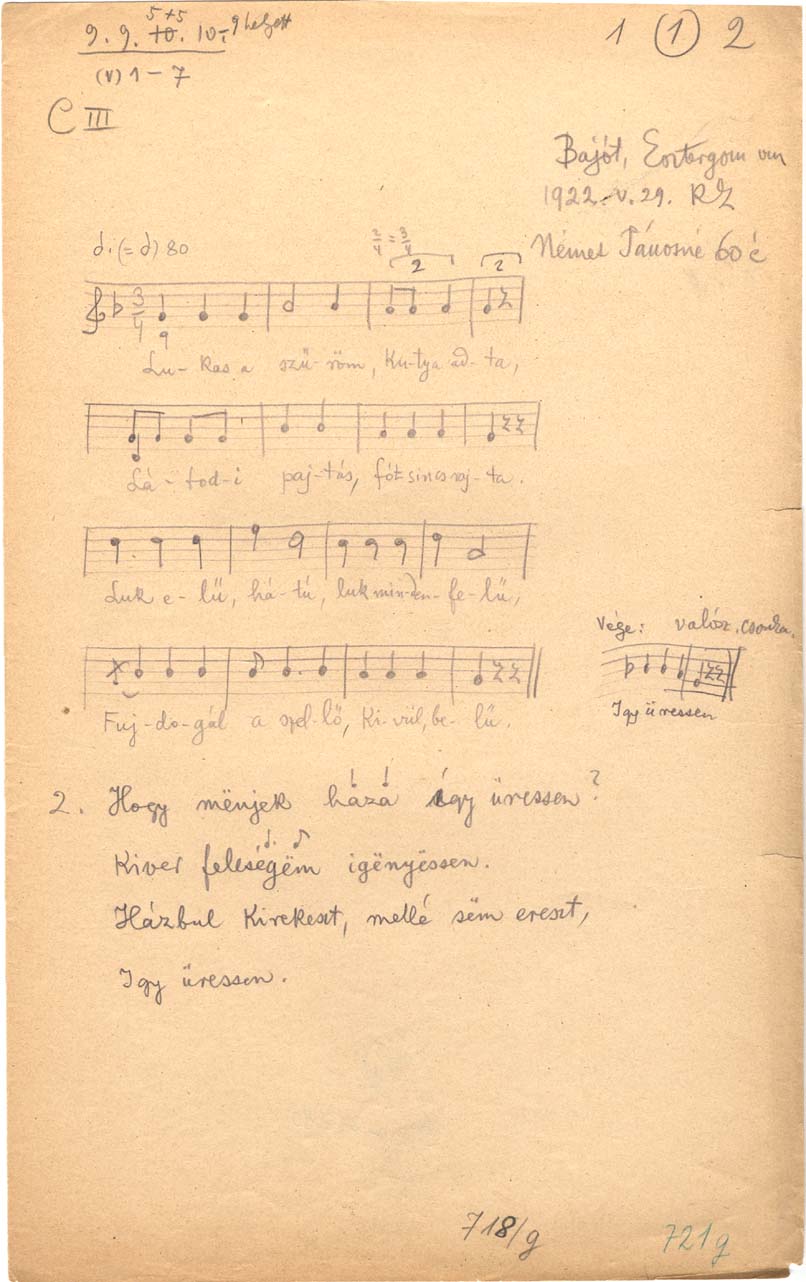 5+5
9. 9. 10. 10 - 9 helyett
1 1 2
(V) 1 - 7
C III
Bajót, Esztergom vm
1922. V. 29. RZ
Némes Jánosné 60 é
(= ) 80
2/4 = 3/4
2 2
3/4
Lu - kas a szü - röm, Ku - tya ad - ta,
Lá - tod - i paj - tás, fót sincs raj - ta.
Luk e - lű, há - tú, luk min - den - fe - lű,
Vége: valósz. csonka.
Fuj - do - gál a szel - lő, Ki - vül, be - lű.
Igy üressen
2. Hogy mënjek házá így üressen?
Kiver feleségëm igënyëssen.
Házbul kirekeszt, mellé sëm ereszt,
Igy üressen.
718/g
721g